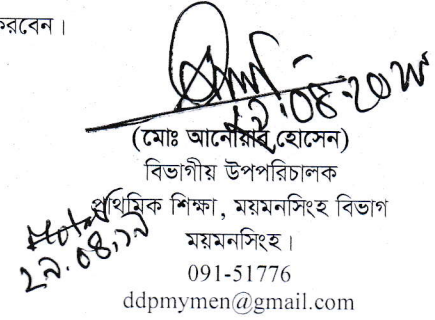 করবেন।
(মোঃ আনোয়ার হোসেন)
বিভাগীয় উপপরিচালক
প্রাথমিক শিক্ষা, ময়মনসিংহ বিভাগ
ময়মনসিংহ।
091-51776
ddpmymen@gmail.com